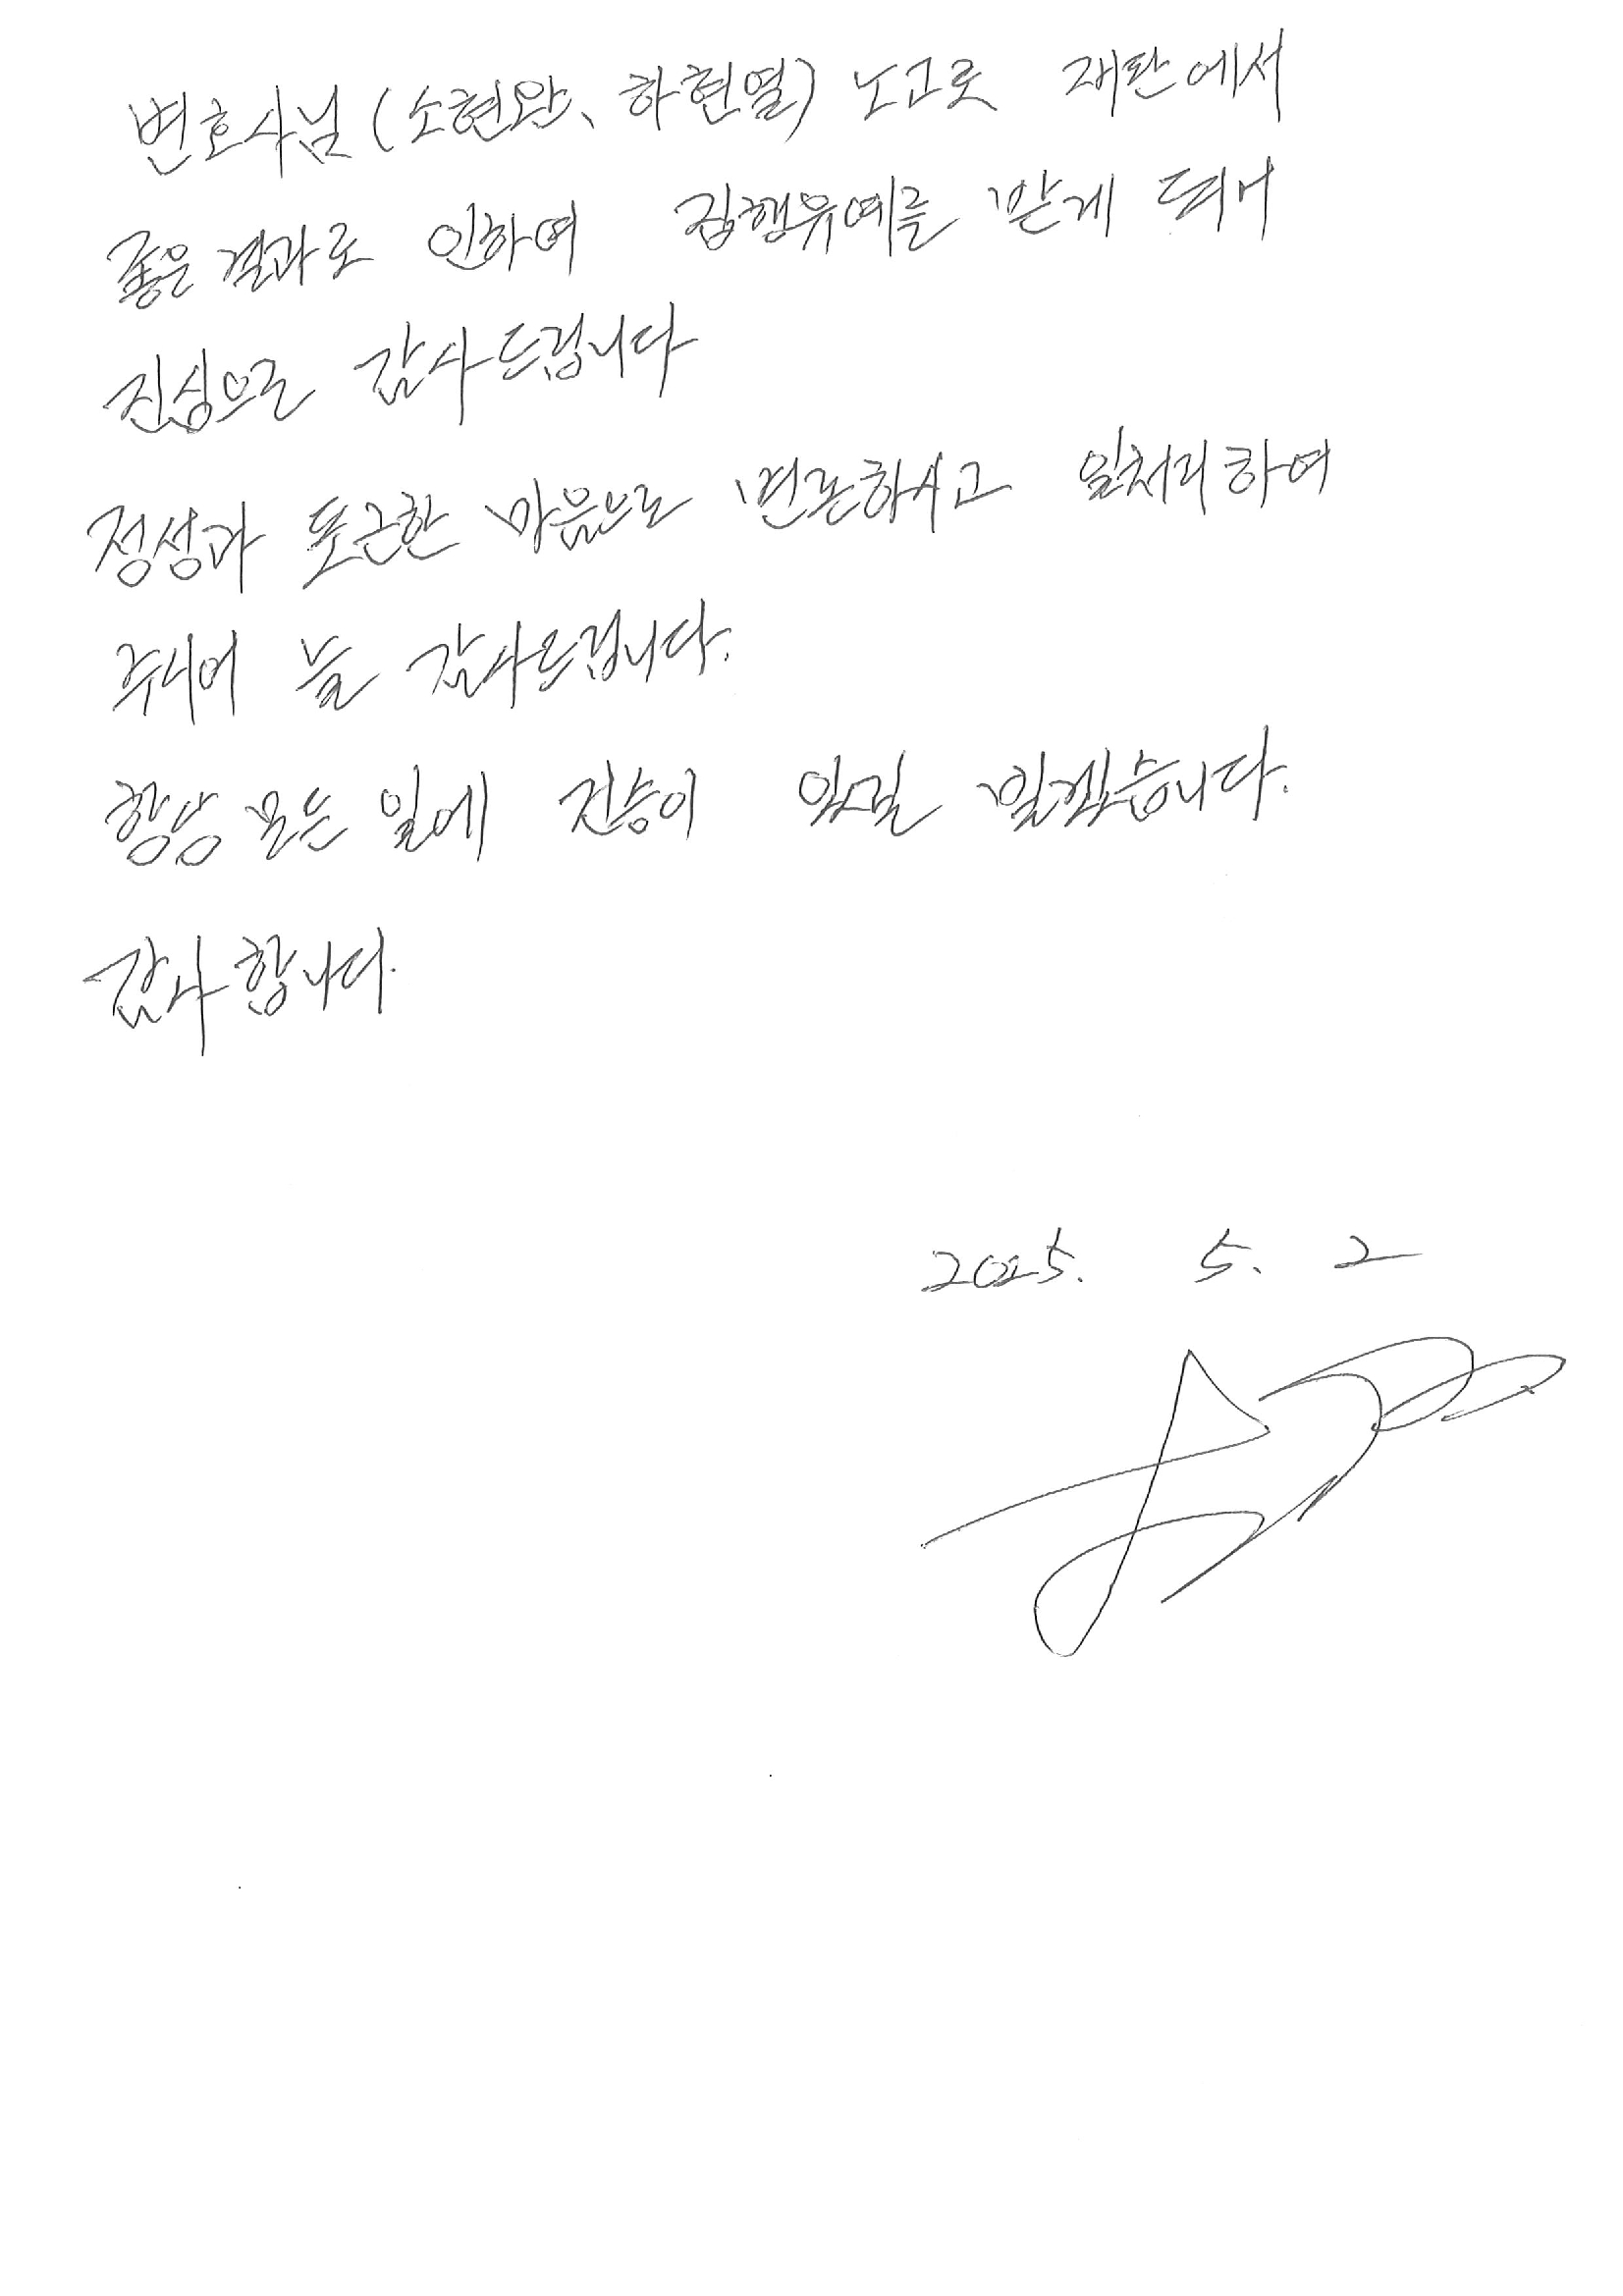 변호사님 (소현완, 하현열) 노고로 재판에서
좋은 결과로 인하여 집행유예를 받게 되어
진심으로 감사드립니다
정성과 포근한 마음으로 변론하시고 일처리하여
주시어 늘 감사드립니다.
항상 모든 일에 건승이 있길 빌겠습니다.
감사합니다.
2025. 5. 2